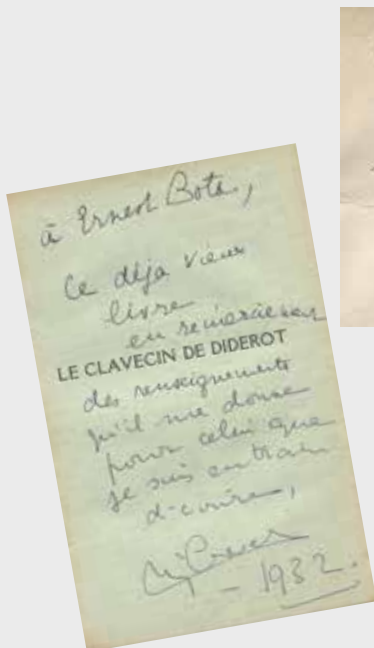 à Ernest Bota,
Ce déja vieux
livre
en remerciement
LE CLAVECIN DE DIDEROT
des renseignements
qu'il me donne
pour celui que
je suis en train
d'écrire,
R. Crevel
- 1932.